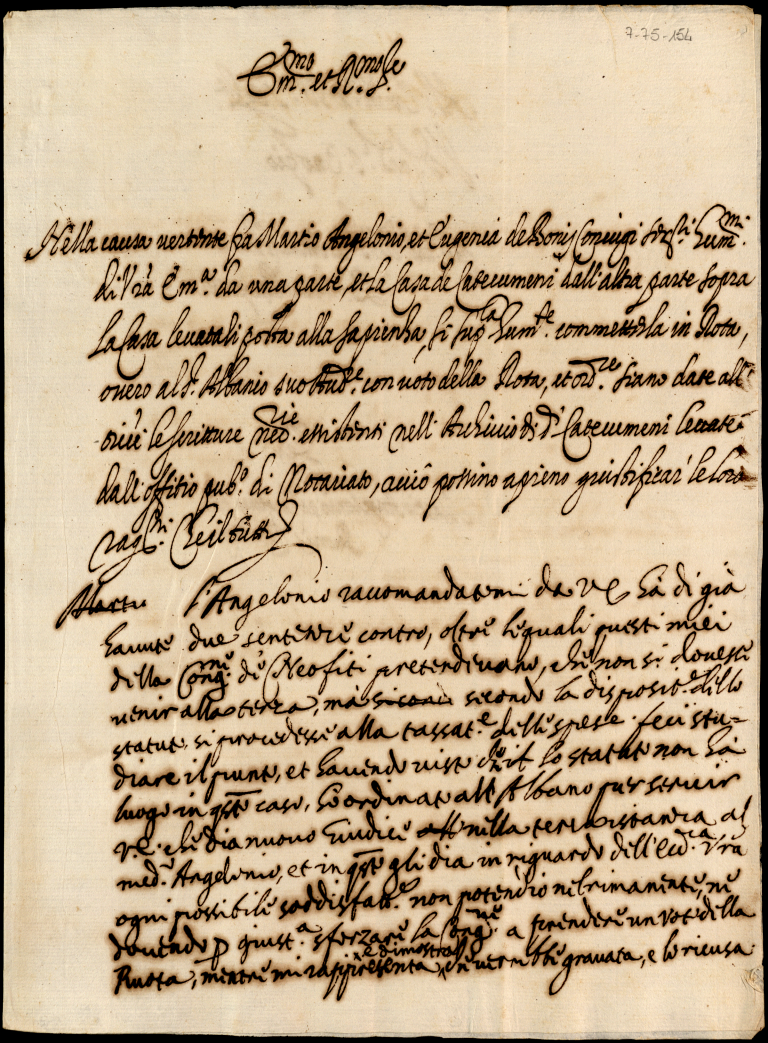 7-75-154
Em.mo et R.mo S.re
Nella causa vertente fra Martio Angelonio, et Eugenia de Bonis Coniugi ser.ri hum.mi
di V.ra Em.a da una parte, et la Casa de Catecumeni dall'altra parte sopra
la Casa levatali posta alla Sapienza, si sup.ca hum.te commetterla in Rota,
overo al S. Albanio suo Aud.re con voto della Rota, et ord.re siano date all'
le scritture nec.rie esistenti nell'Archivio di d.i Catecumeni levate
dall'offitio pub.o di Notariato, acciò possino apieno giustificar le loro
rag.ni Che il tutto
l'Angelonio raccomandatomi da V.E. hà di già
havute due sentenze contro, oltre le quali questi miei
della Cong.ne de Neofiti pretendevano, che non si dovesse
venir alla terza, mà secondo la disposit.e dello
statuto, si procedesse alla tassat.e delle spese. feci stu-
diare il punto, et havendo visto che lo statuto non hà
luogo in q.sto caso, hò ordinato all'Albano per servir
V.E. che dia nuovo Giudice nella terza istanza al
med.o Angelonio, et in q.sto gli dia in riguardo dell'Ecc.za V.ra
ogni possibile soddisfatt.e non potendo nè ne
dovendo p giust.a sforzare la Cong.ne a prendere un voto della
Ruota, mentre mi rappresenta, e dimostra, che verrebbe gravata, e lo ricusa